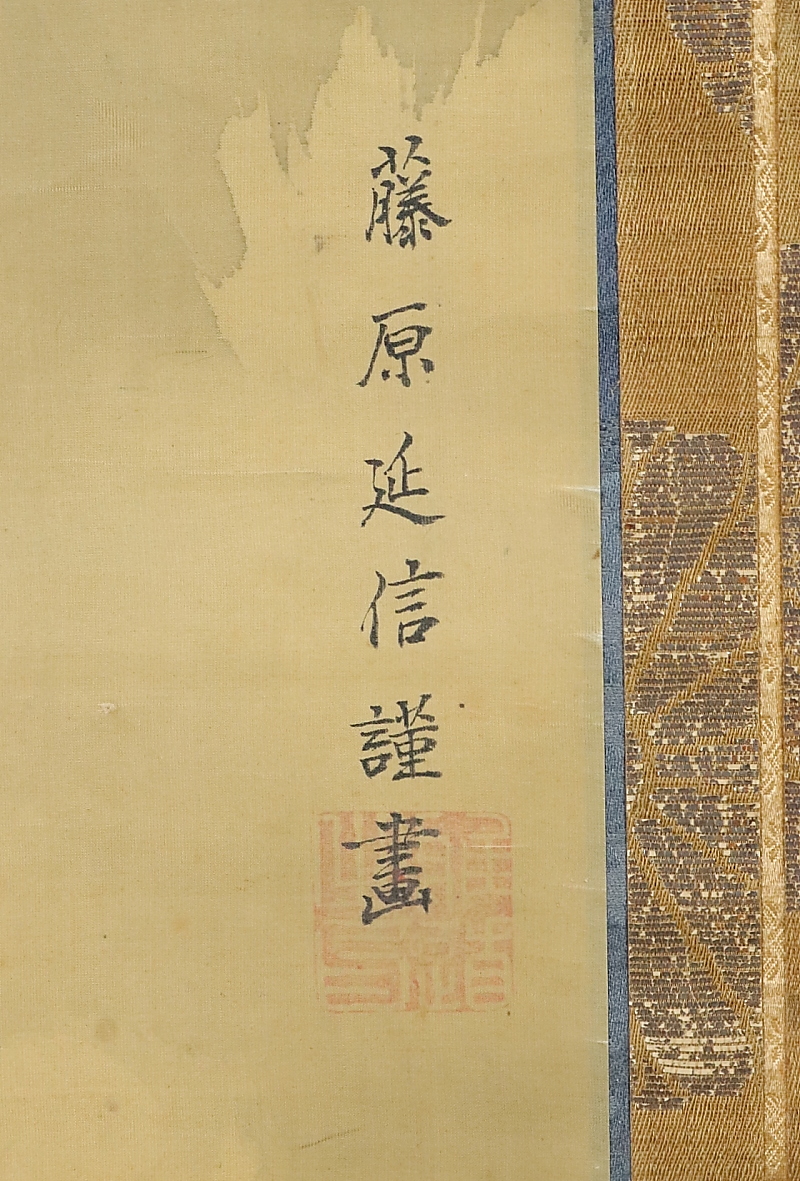 藤原延信謹畫